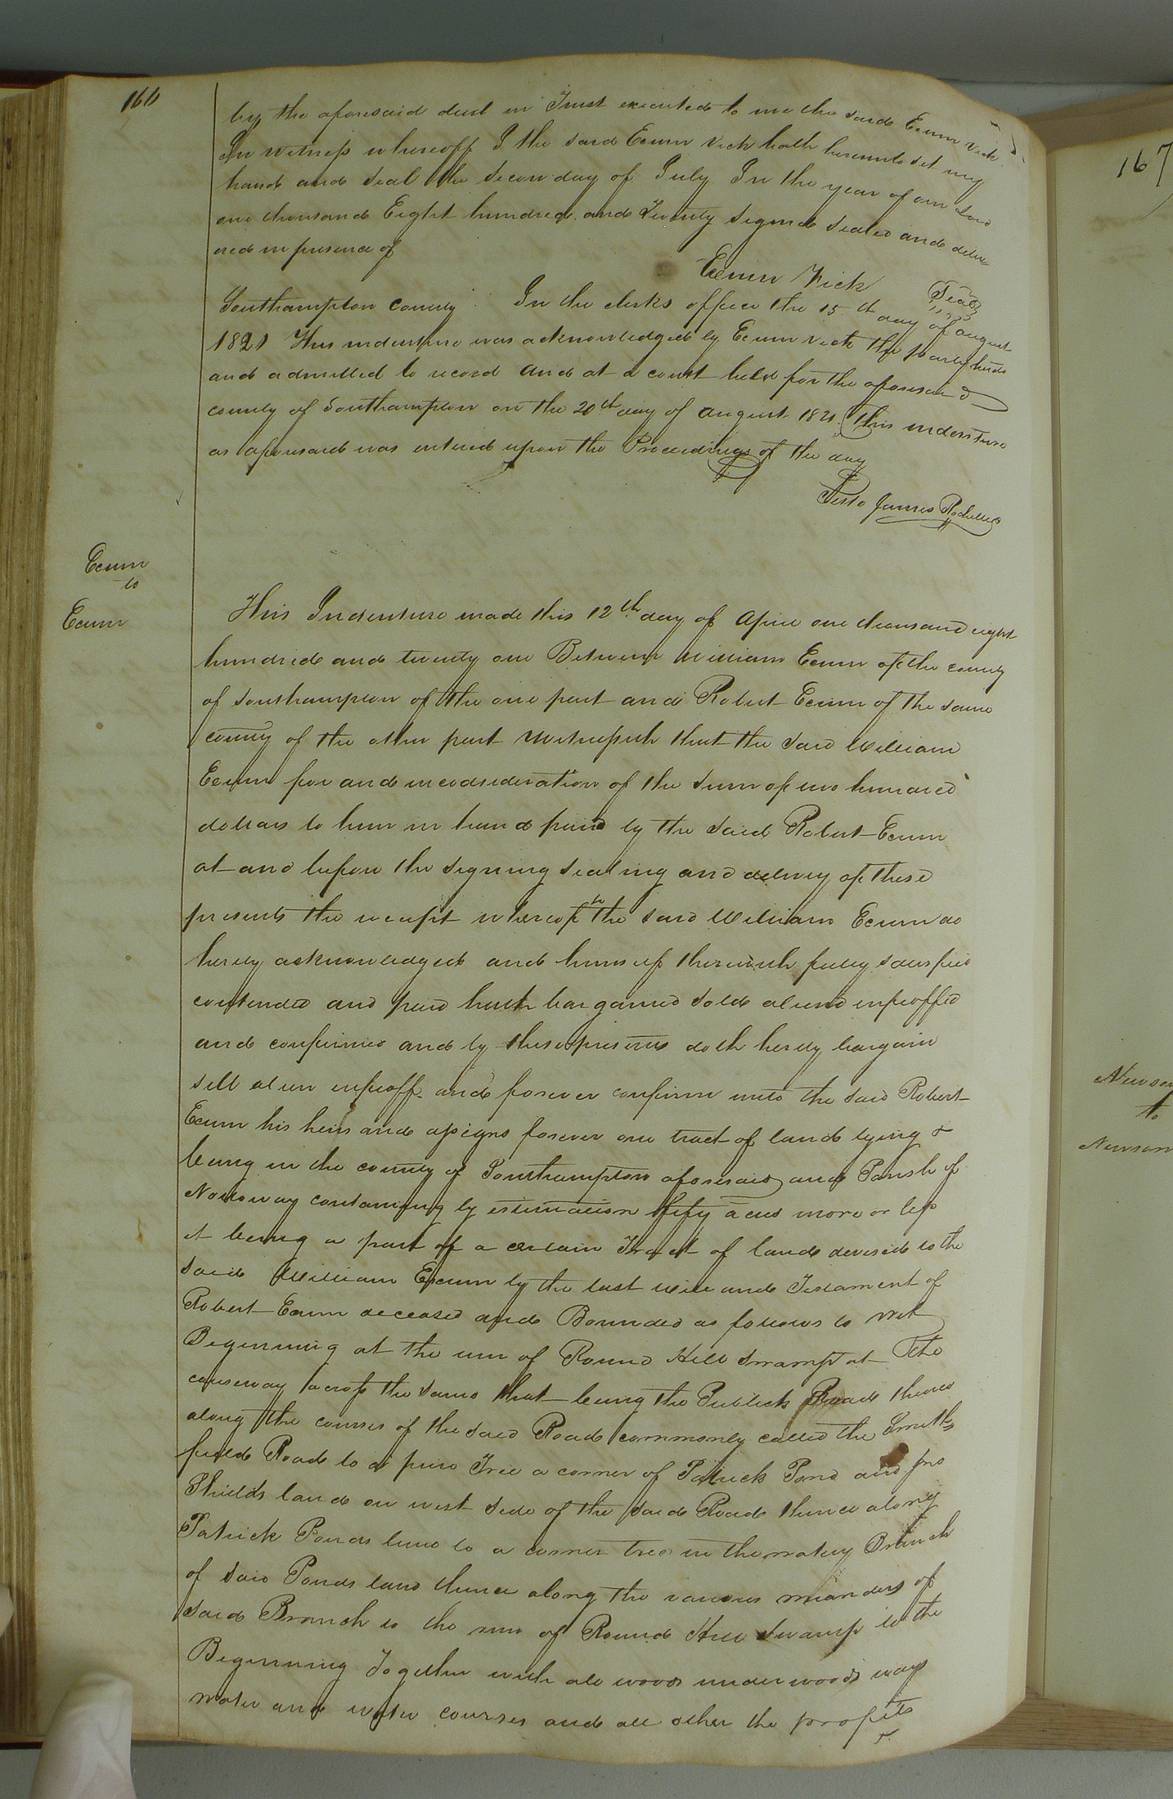 166
by the aforesaid deed in Trust executed to me the said Exum Vick
In witness whereoff I the said Exum Vick hath hereunto set my
hand and Seal the Secon day of July In the year of our Lord
one thousand Eight hundred and Twenty Signed Sealed and deliv
ered in presence of
Exum Vick Seal
Southampton County In the clerks office the 15th day of august
1821 This indenture was acknowledged by Exum Vick the party thereto
and admitted to record and at a court held for the aforesaid
county of Southampton on the 20th day of august 1821 this indenture
as aforesaid was entered upon the Proceedings of the day
Teste James Rochelle
Exum
to
Exum
This Indenture made this 12th day of April one thousand eight
hundred and twenty one Between William Exum of the county
of Southampton of the one part and Robert Exum of the same
county of the other part Witnesseth that the said William
Exum for and in consideration of the sum of two hundred
dollars to him in hand paid by the said Robert Exum
at and before the signing sealing and delivery of these
presents the receipt whereof to the said William Exum do
hereby acknowledged and himself therewith fully satisfied
contended and paid hath bargained sold aliend infeoffed
and confirmed and by these presents doth hereby bargain
sell alien infeoff and forever confirm unto the said Robert
Exum his heirs and assigns forever one tract of land lying &
being in the county of Southampton aforesaid and Parish of
Nottoway containing by estimation fifty acres more or less
it being a part of a certain Tract of land devised to the
said William Exum by the last will and Testament of
Robert Exum deceased and Bounded as follows to wit
Beginning at the run of Round Hill Swamp at The
causeway across the same that being the Publick Road thence
along the courses of the said Road commonly called the Smith
field Road to a pine Tree a corner of Patrick Pond and Jno
Shields land on west side of the said Road thence along
Patrick Ponds line to a corner tree in the watery Branch
of said Ponds land thence along the various meanders of
said Branch to the run of Round Hill Swamp to the
Beginning Together with all woods underwoods ways
water and water courses and all other the profits
&
167
Newsom
to
Newsom